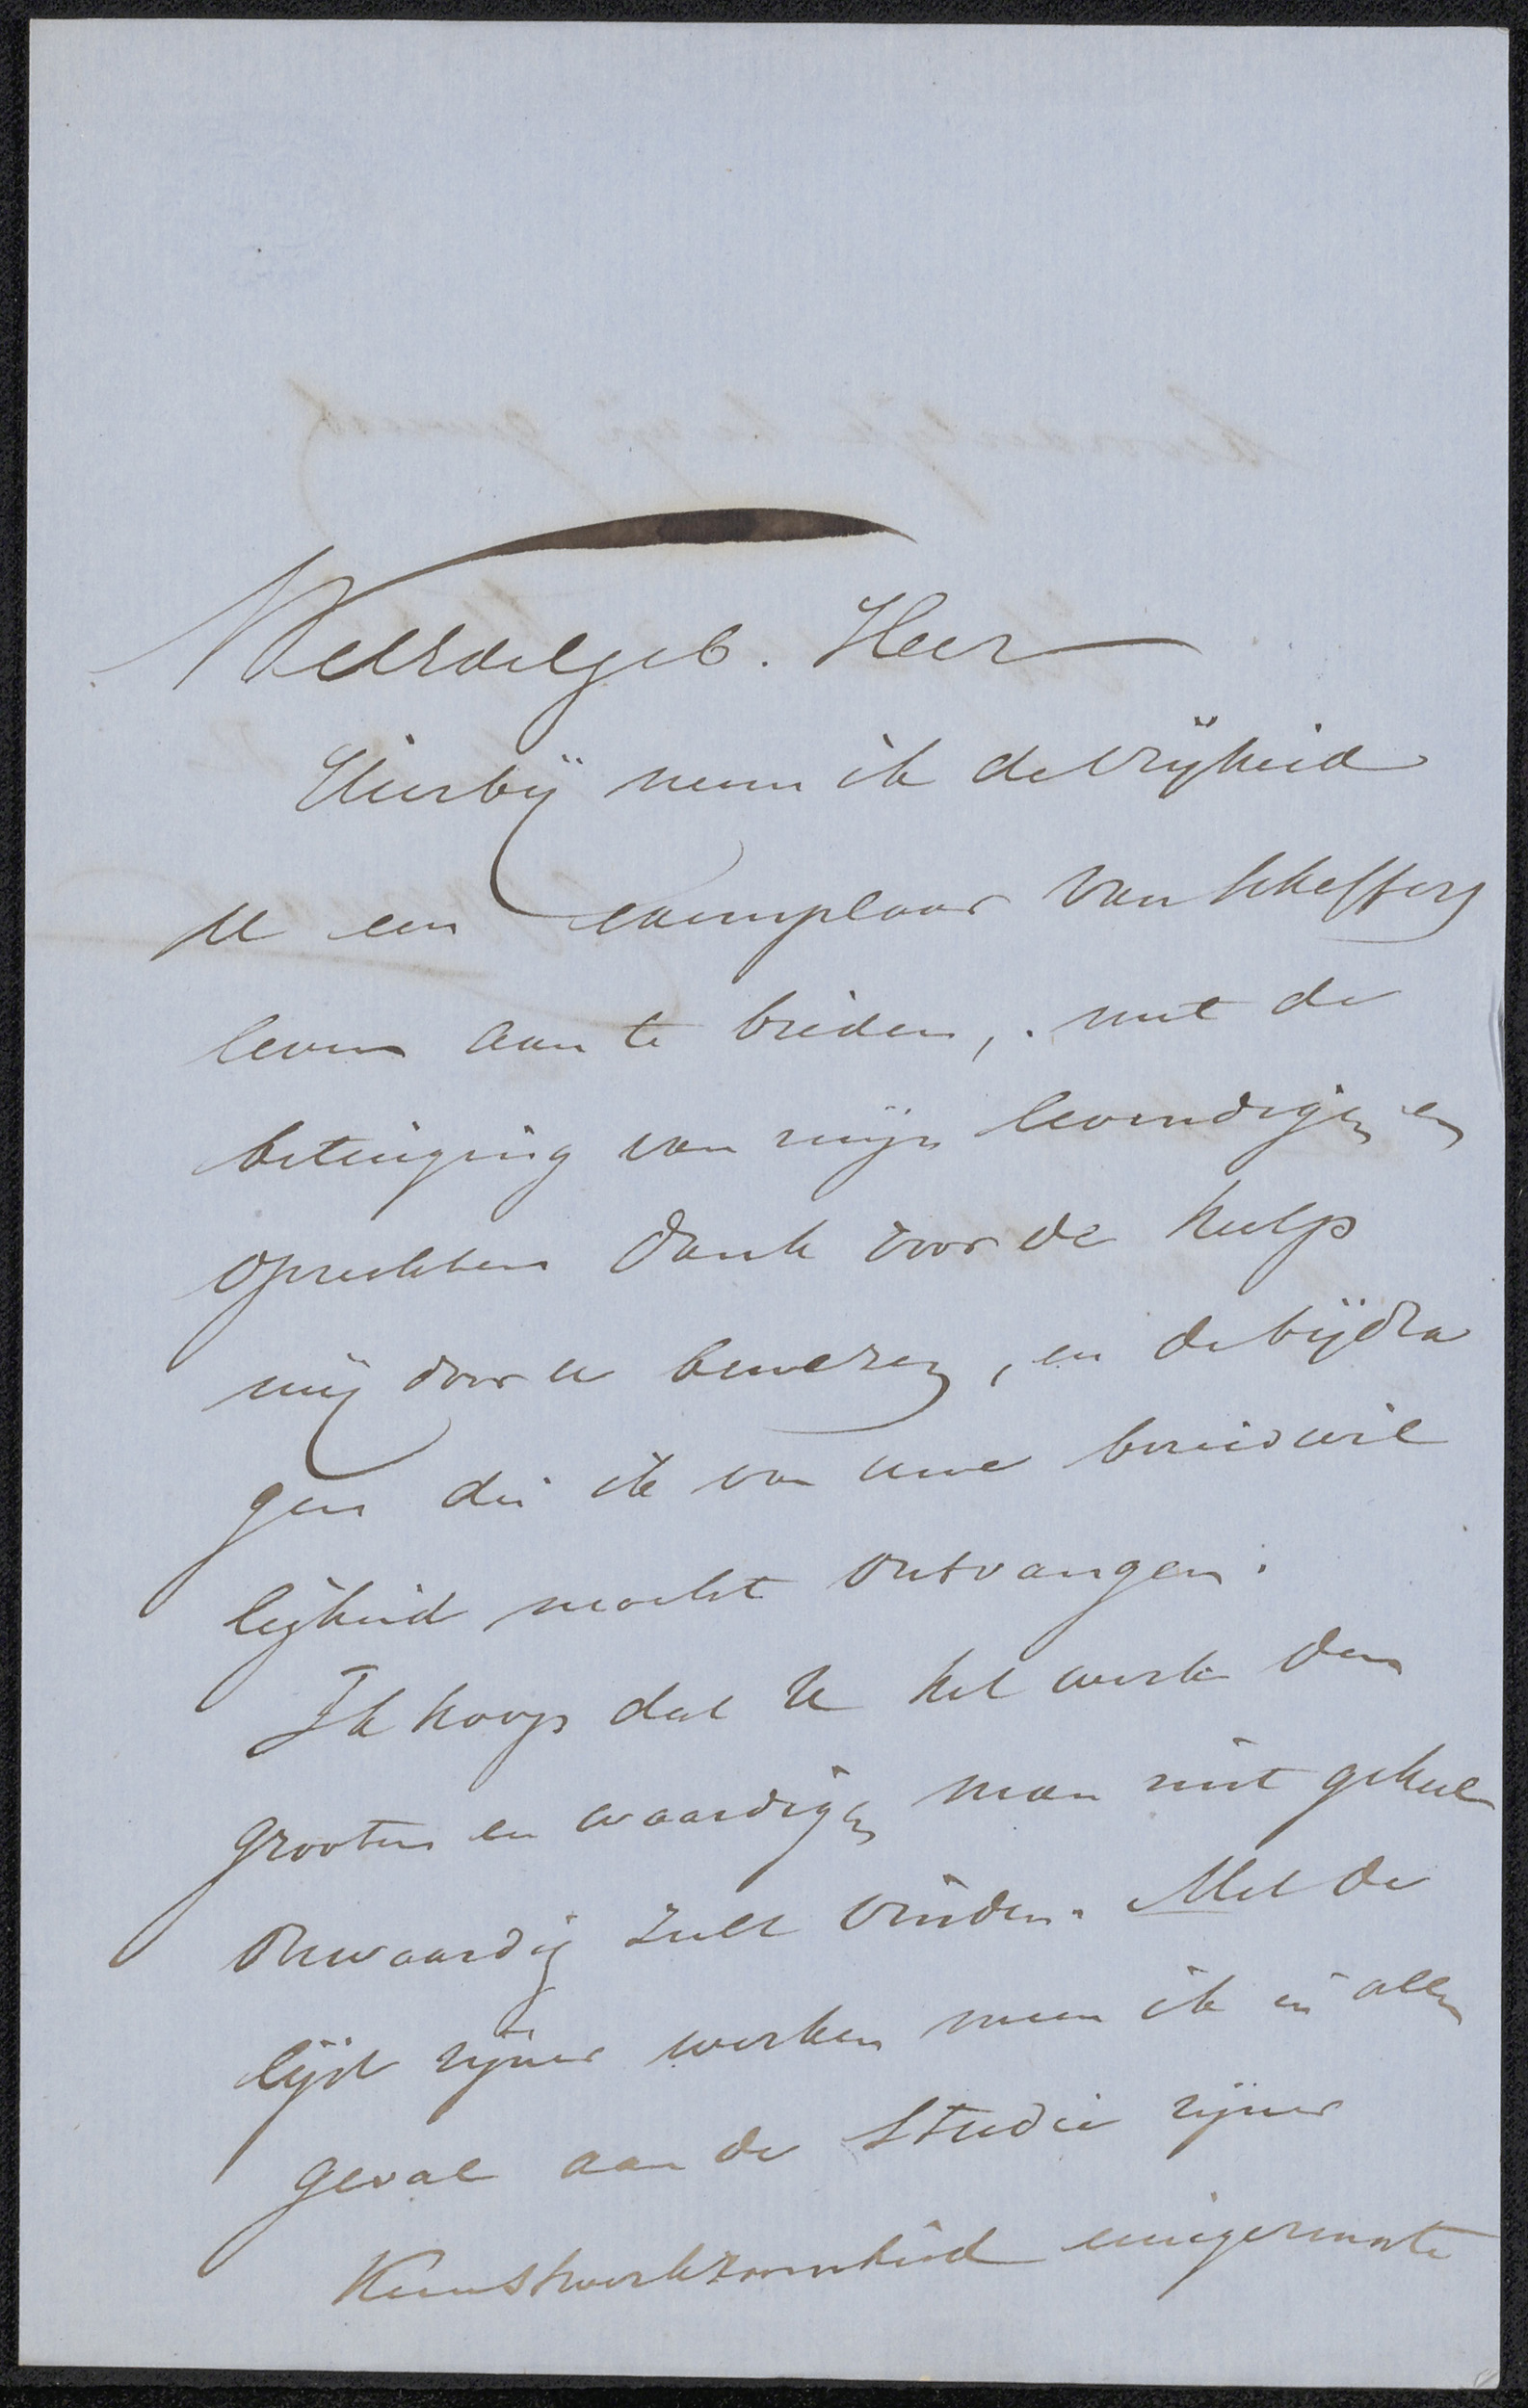 WelEdelgeb. Heer
Hierbij neem ik de vrijheid
U een exemplaar van Scheffers
leven aan te bieden, met de
betuiging van mijn levendigen en
oprechten dank voor de hulp
mij door u bewezen, en de bijdra
gen die ik van uwe bereidwil
ligheid mocht ontvangen.
Ik hoop dat U het werk den
grooten en waardigen man niet geheel
onwaardig zult vinden. Met de
lijst zijner werken meen ik in allen
geval aan de studie zijner
Kunstwerkzaamheid eenigermate